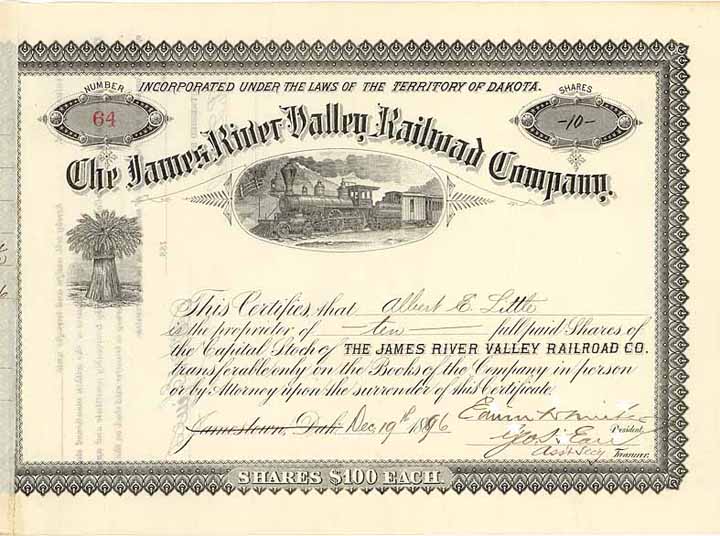 NUMBER
64
INCORPORATED UNDER THE LAWS OF THE TERRITORY OF DAKOTA.
SHARES
-10-
The James River Valley Railroad Company.
This Certifies, that Albert E. Little
is the proprietor of ten full paid Shares of
the Capital Stock of THE JAMES RIVER VALLEY RAILROAD CO.
transferable only on the Books of the Company in person
or by Attorney upon the surrender of this Certificate
Jamestown, Dak. Dec 19th 1896
President.
Geo. Earl
Asst Secy Treasurer.
SHARES $100 EACH.